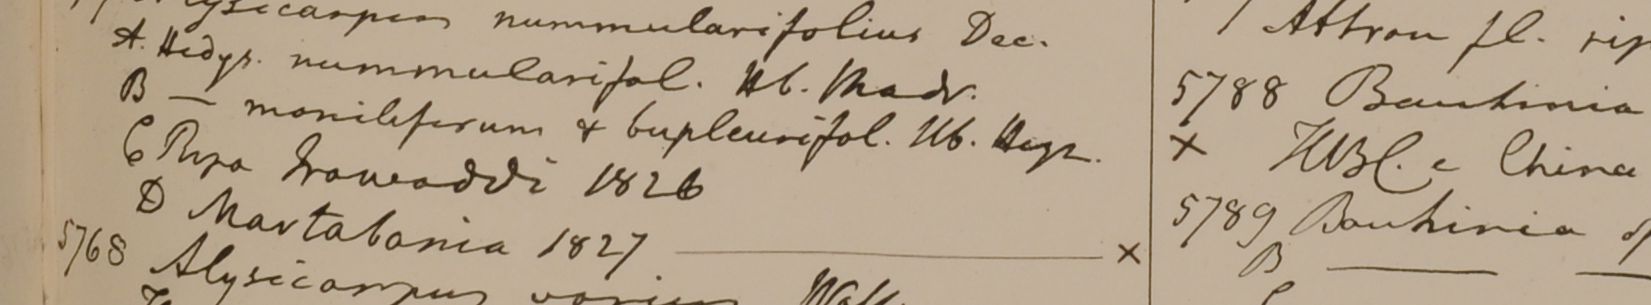 Alysicarpus nummularifolius Dec.
A. Hedys. nummularifol. Hb. Madr.
B — moniliferum & bupleurifol. Hb. Heyn.
C Ripa Irawaddi 1826
D Martabania 1827 ——— x
5768 Alysicarpus Wall
Attran fl. rip
5788 Bauhinia
x HBC. e China
5789 Bauhinia
B —— —
C